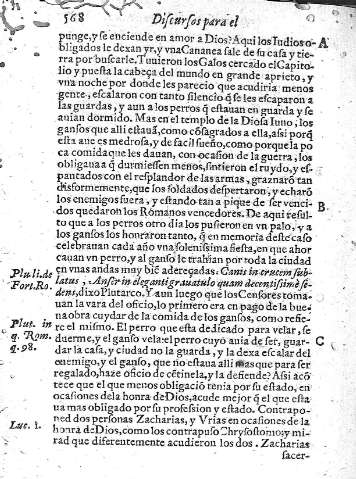 568 Discursos para el
punge, y se enciende en amor a Dios? Aqui los Iudios o- A
bligados le dexan yr, y vna Cananea sale de su casa y tie-
rra por buscarle. Tuuieron los Galos cercado el Capito-
lio y puesta la cabeça del mundo en grande aprieto, y
vna noche por donde les parecio que acudiria menos
gente, escalaron con tanto silencio q̃ se les escaparon a
las guardas, y aun a los perros q̃ estauan en guarda y se
auian dormido. Mas en el templo de la Diosa Iuno, los
gansos que alli estauã, como cõsagrados a ella, assi porq̃
esta aue es medrosa, y de facil sueño, como porque la po
ca comida que les dauan, con ocasion de la guerra, los
obligaua a q̃ durmiessen menos, sintieron el ruydo, y es-
pantados con el resplandor de las armas, graznarõ tan
disformemente, que los soldados despertaron, y echarõ
los enemigos fuera, y estando tan a pique de ser venci- B
dos quedaron los Romanos vencedores. De aqui resul-
to que a los perros otro dia los pusieron en vn palo, y a
los gansos los honraron tanto, q̃ en memoria deste caso
celebrauan cada año vna solenissima fiesta, en que ahor
cauan vn perro, y al ganso le trahian por toda la ciudad
Plu. li. de en vnas andas muy biẽ adereçadas: Canis in crucem sub-
Fort. Ro. latus, Anser in eleganti grauatulo quam decentissimè se-
dens, dixo Plutarco. Y aun luego que los Censores toma-
uan la vara del oficio, lo primero era en pago de la bue
Plut. in na obra cuydar de la comida de los gansos, como refie-
q. Rom. re el mismo. El perro que esta dedicado para velar, se
q. 98. duerme, y el ganso vela: el perro cuyo auia de ser, guar- C
dar la casa, y ciudad no la guarda, y la dexa escalar del
enemigo, y el ganso, que no estaua alli mas que para ser
regalado, haze oficio de cẽtinela, y la defiende? Assi acõ
tece que el que menos obligaciõ tenia por su estado, en
ocasiones de la honra de Dios, acude mejor q̃ el que esta
ua mas obligado por su profession y estado. Contrapo-
ned dos personas Zacharias, y Vrias en ocasiones de la
Luc. 1. honra de Dios, como los contrapuso Chrysostomo; y mi-
rad que diferentemente acudieron los dos. Zacharias
sacer-